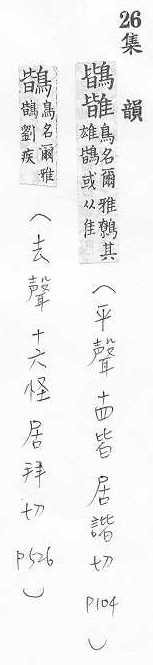 26集 韻
鶛䧶 鳥名爾雅鷯其
雄鶛或从隹
(平聲十四皆居諧切 P104)
鶛 鳥名爾雅
鶛劉疾
(去聲十六怪居拜切 P526)